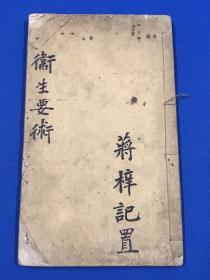 衞生要術
蔣梓記置